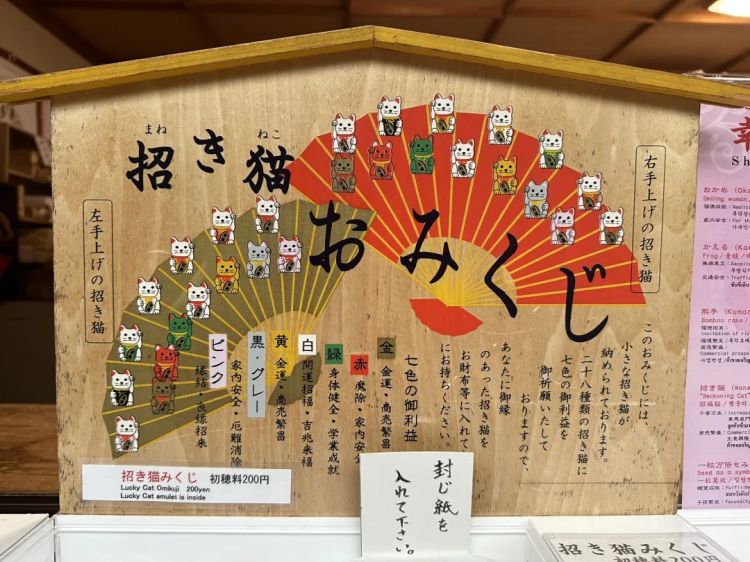 招き猫
まね
ねこ
おみくじ
右手上げの招き猫
左手上げの招き猫
このおみくじには、
小さな招き猫が
納められております。
二十八種類の招き猫に
七色の御利益を
御祈願いたして
おりますので、
あなたに御縁
のあった招き猫を
お財布等に入れて
にお持ちください。
七色の御利益
金 金運・商売繁昌
赤 魔除・家内安全
緑 身体健全・学業成就
白 開運招福・吉兆来福
黄 金運・商売繁昌
黒・グレー 家内安全・厄難消除
ピンク 縁結・良縁招来
招き猫みくじ 初穂料200円
Lucky Cat Omikuji 200yen
Lucky Cat amulet is inside
封じ紙を
入れて下さい。
招き猫みくじ
初穂料200円
幸
Sh
おかめ (Oka
Smiling woman
かえる (Kae
Frog
熊手 (Kuma
Bamboo rake
招き猫
"Beckoning Cat"
一粒万倍
Seed as a symb